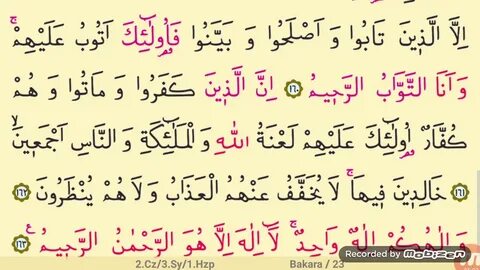 اِلَّا الَّذٖينَ تَابُوا وَ اَصْلَحُوا وَ بَيَّنُوا فَاُولٰٓئِكَ اَتُوبُ عَلَيْهِمْۚ
وَ اَنَا التَّوَّابُ الرَّحٖيمُ ١٦٠ اِنَّ الَّذٖينَ كَفَرُوا وَ مَاتُوا وَ هُمْ
كُفَّارٌ اُولٰٓئِكَ عَلَيْهِمْ لَعْنَةُ اللّٰهِ وَ الْمَلٰٓئِكَةِ وَ النَّاسِ اَجْمَعٖينَۙ
١٦١ خَالِدٖينَ فٖيهَاۚ لَا يُخَفَّفُ عَنْهُمُ الْعَذَابُ وَ لَا هُمْ يُنْظَرُونَ ١٦٢
وَ اِلٰهُكُمْ اِلٰهٌ وَاحِدٌۚ لَٓا اِلٰهَ اِلَّا هُوَ الرَّحْمٰنُ الرَّحٖيمُ ١٦٣ ع
2.Cz/3.Sy/1.Hzp Bakara / 23
Recorded by mobizen